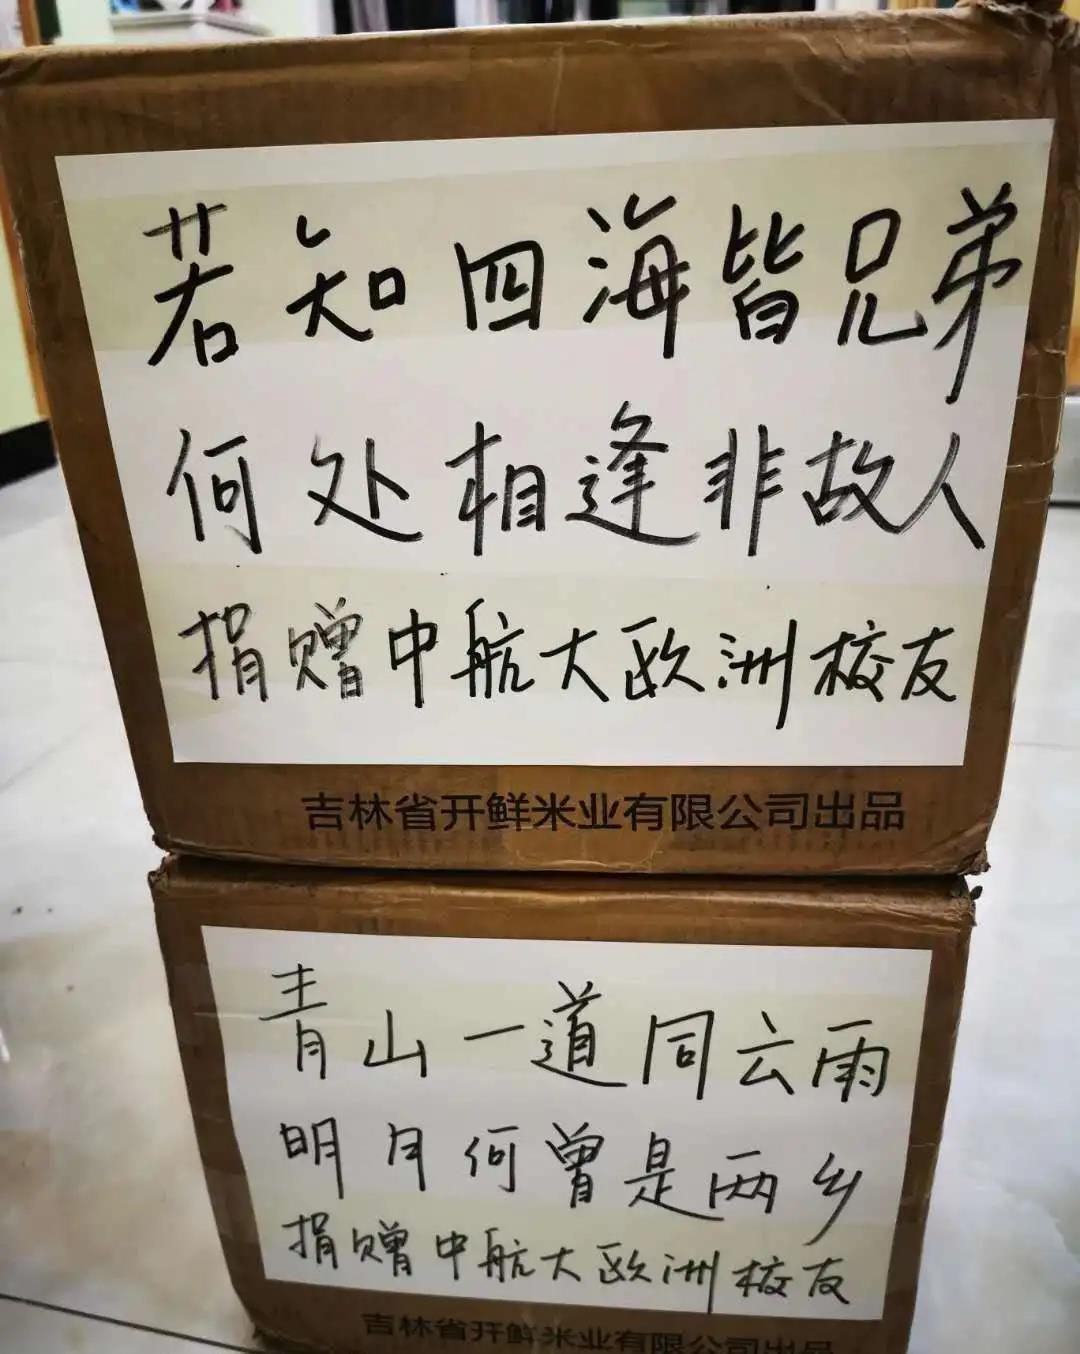 若知四海皆兄弟
何处相逢非故人
捐赠中航大欧洲校友
吉林省开鲜米业有限公司出品
青山一道同云雨
明月何曾是两乡
捐赠中航大欧洲校友
吉林省开鲜米业有限公司出品